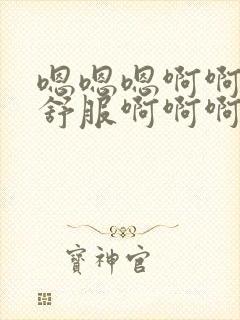 嗯嗯嗯啊啊
舒服啊啊啊
寳神官